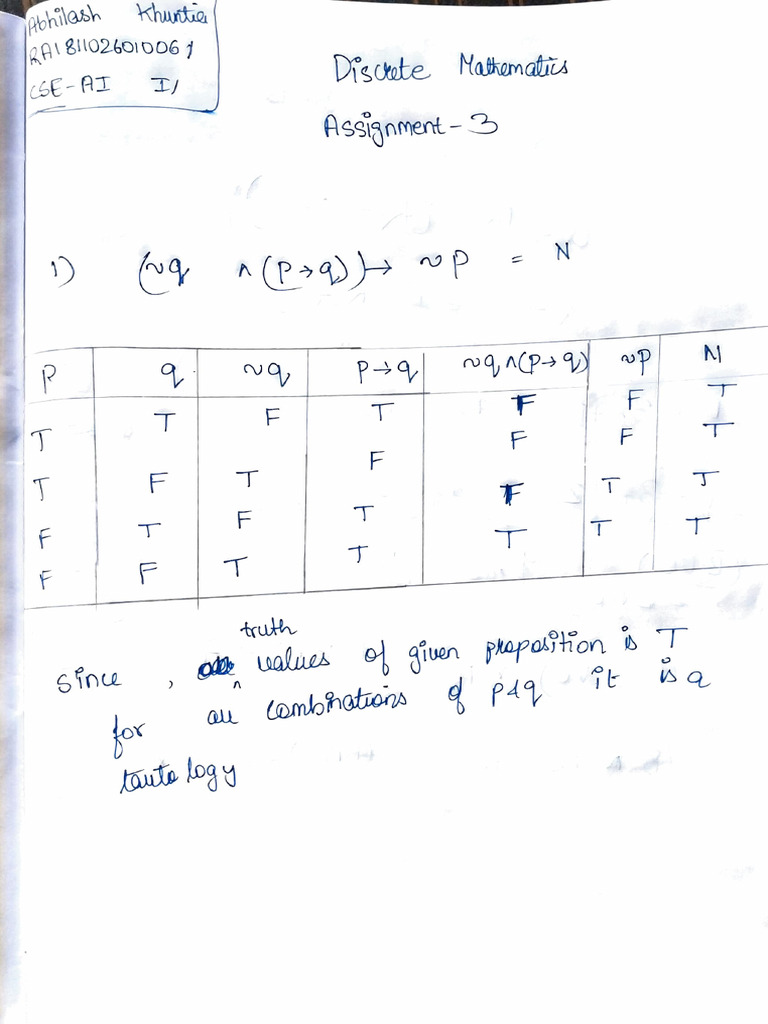 Abhilash Khuntia
RA1811026010061
CSE-AI I1
Discrete Mathematics
Assignment-3
1) (~q ∧ (P→q)) → ~P = N
P q ~q P→q ~q∧(P→q) ~P N
T T F T F F T
T F T F F F T
F T F T F T T
F F T T T T T
truth
since, values of given proposition is T
for all combinations of P&q it is a
tautology